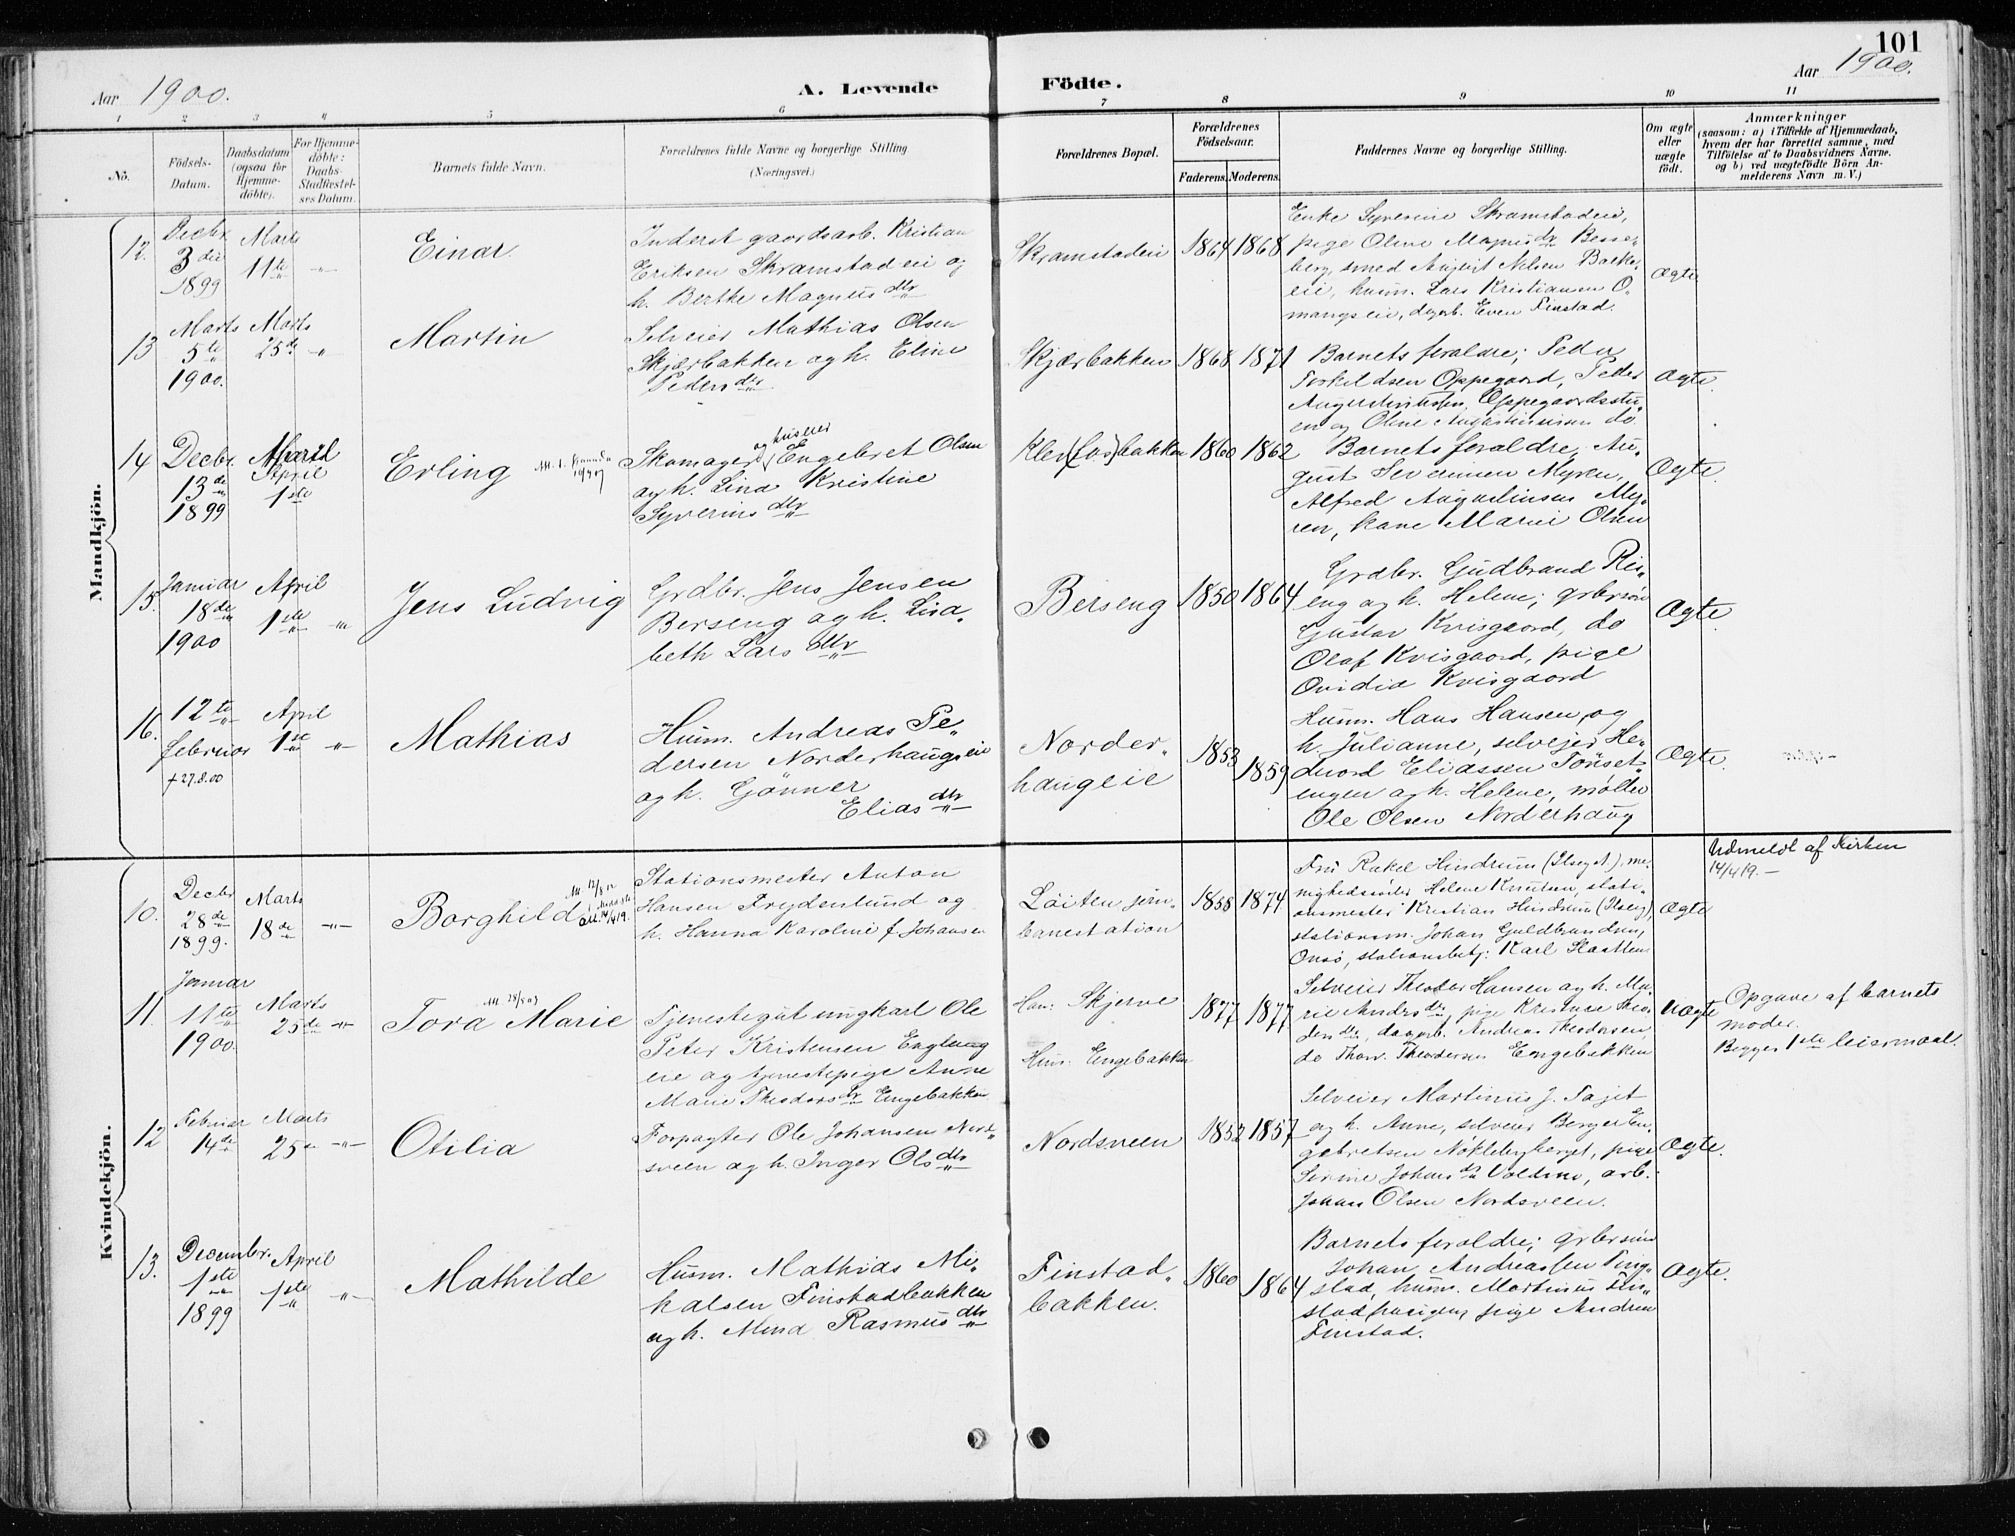 101
Aar 1900.
A. Levende Födte.
Aar 1900.
1 2 3 4 5 6 7 8 9 10 11
No.
Födsels-
Datum.
Daabsdatum
(ogsaa for
Hjemme-
döbte).
For Hjemme-
döbte:
Daabs-
Stadfæstel-
ses Datum.
Barnets fulde Navn.
Forældrenes fulde Navne og borgerlige Stilling
(Næringsvei.)
Forældrenes Bopæl.
Forældrenes
Födselsaar.
Faderens. Moderens.
Faddernes Navne og borgerlige Stilling.
Om ægte
eller
uægte
födt.
Anmærkninger
(saasom: a) i Tilfælde af Hjemmedaab,
hvem der har forrettet samme, med
Tilföielse af to Daabsvidners Navne.
og b) ved uægtefödte Börn An-
melderens Navn m. V.)
Mandkjön.
12.
Decbr.
3die
1899
Marts
11te
Einar
Inderst gaardsarb. Kristian
Eriksen Skramstadeie og
h. Berthe Magnusdtr
Skramstadeie
1864 1868
Enke Syverine Skramstadeie,
pige Oline Magnusdr Besse-
berg, smed August Nilsen Bakke-
eie, husm. Lars Kristiansen O-
mangseie, dagarb. Even Finstad.
Ægte
13
Marts
5te
1900.
Marts
25de
Martin
Selveier Mathias Olsen
Skjærbakken og h. Eline
Pedersdtr
Skjærbakken
1868 1871
Barnets forældre; Peder
Torkildsen Oppegaard, Peder
Augustinussen Oppegaardsstu-
en og Oline Augustinussen do.
Ægte.
14
Decbr.
13de
1899
April
1ste
Erling
Skomager og huseier Engebret Olsen
og h. Lina Kristine
Syverinsdtr
Klev(fos)bakken
1860 1862
Barnets forældre, Au-
gust Severinsen Myren,
Alfred Augustinsen My-
ren, kone Marie Olsen
Ægte.
15.
Januar
18de
1900
April
1ste
Jens Ludvig
Grdbr. Jens Jensen
Berseng og h. Lisa-
beth Larsdtr
Berseng
1850 1864
Grdbr. Gudbrand Ris-
eng og h. Helene; grbrsøn
Gustav Kvisgaard, do
Olaf Kvisgaard, pige
Ovidia Kvisgaard
Ægte.
16.
12te
Februar
+ 27.8.00
April
1ste
Mathias
Husm. Andreas Pe-
dersen Norderhaugseie
og h. Gönner
Eliasdtr
Norder-
haugeie
1853 1859
Husm. Hans Hansen og
h. Julianne, selveier He-
devard Eliassen Tønset-
engen og h. Helene, møller
Ole Olsen Norderhaug
Ægte.
Kvindekjön.
10.
Decbr
28de
1899.
Marts
18de
Borghild
Stationsmester Anton
Hansen Frydenlund og
h. Hanna Karoline f. Johansen
Løiten jern-
banestation
1858 1874
Fru Rakel Hindrum (Ilseg st.), me-
nighedssøster Helene Knutsen, stati-
onsmester Kristian Hindrum (Ilseng),
stationsm. Johan Guldbrandsen,
Onsø, stationsbetj. Karl Slaatten
Ægte
Udmeldt af Kirken
14/4 19. —
11.
Januar
11te
1900.
Marts
25de
Tora Marie
Tjenestegut ungkarl Ole
Peter Kristensen Englaug
eie og tjenestepige Anne
Marie Theodorsdr Engebakken
Han: Skjerve
Hun: Engebakken
1877 1877
Selveier Theodor Hansen og h. Ma-
rie Andrsdtr, pige Kristine Theo-
dorsdtr, dagarb. Andreas Theodorsen,
do Thorv. Theodorsen Engebakken
uægte
Opgave af barnets
moder.
Begges 1ste leiermaal.
12
Februar
14de
Marts
25de
Otilia
Forpagter Ole Johansen Nord-
sveen og h. Inger Olsdtr
Nordsveen
1852 1857
Selveier Martinius J. Tajet
og h. Anne, selveier Berger En-
gebretsen Nøklebyberget, pige
Serine Johansdr Voldmo, arb.
Johan Olsen Nordsveen.
Ægte.
13.
Decembr.
1ste
1899
April
1ste
Mathilde
Husm. Mathias Mi-
kalsen Finstadbakken
og h. Mina Rasmusdtr
Finstad-
bakken.
1860 1864
Barnets forældre; grbrsøn
Johan Andreassen Ting-
stad, husm. Martinus Fin-
stad, pige Andrea
Finstad.
Ægte.